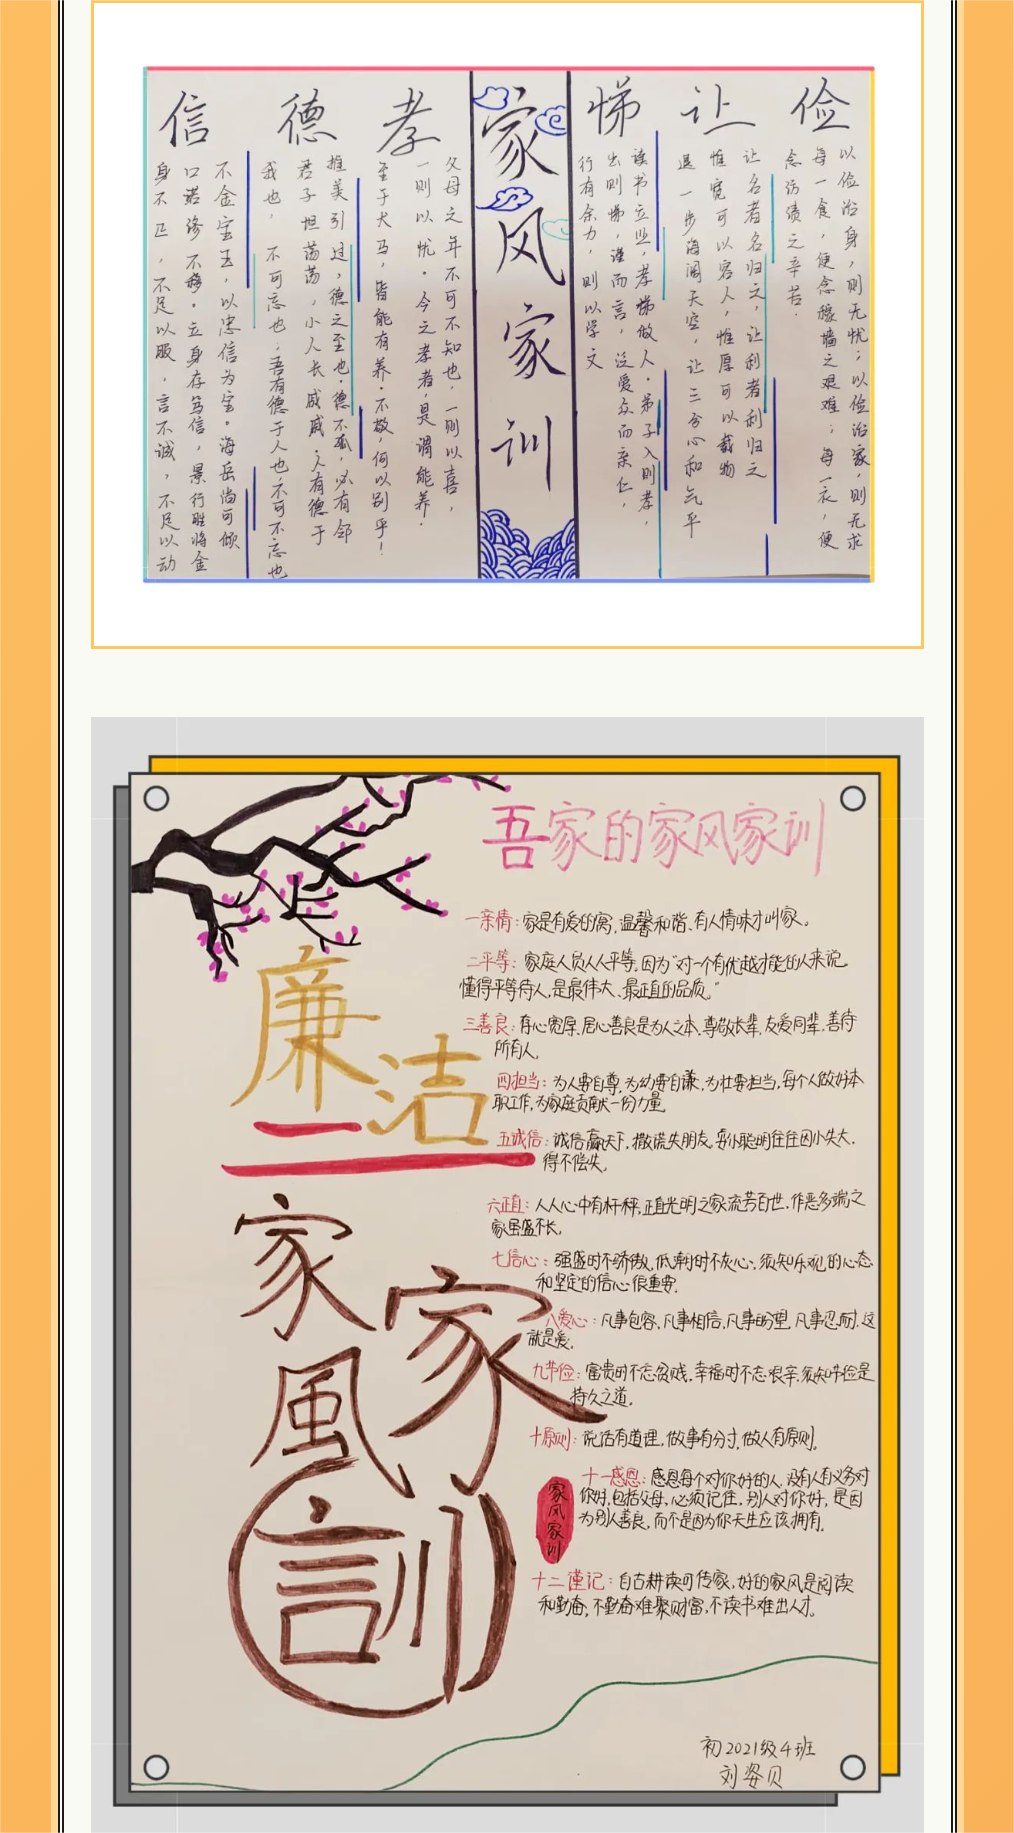 家风家训
俭
以俭治身，则无忧；以俭治家，则无求
每一食，便念稼墙之艰难；每一衣，便
念纺绩之辛苦．
让
让名者名归之，让利者利归之
惟宽可以容人，惟厚可以载物
退一步海阔天空，让三分心和气平
悌
读书立业，孝悌做人．弟子入则孝，
出则悌，谨而言，泛爱众而亲仁，
行有余力，则以学文
孝
父母之年不可不知也．一则以喜，
一则以忧．今之孝者，是谓能养．
至于犬马，皆能有养．不敬，何以别乎！
德
推美引过，德之至也．德不孤，必有邻
君子坦荡荡，小人长戚戚．人有德于
我也，不可忘也．吾有德于人也，不可不忘也
信
不金宝玉，以忠信为宝。海岳尚可倾
口诺终不移。立身存笃信，景行胜将金
身不正，不足以服，言不诚，不足以动
吾家的家风家训
廉洁
家風家訓
一亲情：家是有爱的窝，温馨和谐、有人情味才叫家。
二平等：家庭人员人人平等。因为“对一个有优越才能的人来说
懂得平等待人，是最伟大、最正直的品质。”
三善良：存心宽厚、居心善良是为人之本，尊敬长辈，友爱同辈，善待
所有人。
四担当：为人要自尊，为幼要自谦，为壮要担当，每个人做好本
职工作，为家庭贡献一份力量。
五诚信：诚信赢天下，撒谎失朋友，耍小聪明往往因小失大，
得不偿失。
六正直：人人心中有杆秤，正直光明之家流芳百世，作恶多端之
家虽盛不长。
七信心：强盛时不骄傲，低潮时不灰心，须知乐观的心态
和坚定的信心很重要。
八爱心：凡事包容，凡事相信，凡事盼望，凡事忍耐，这
就是爱。
九节俭：富贵时不忘贫贱，幸福时不忘艰辛，须知节俭是
持久之道。
十原则：说话有道理，做事有分寸，做人有原则。
十一感恩：感恩每个对你好的人，没有人有义务对
你好，包括父母，心须记住，别人对你好，是因
为别人善良，而不是因为你天生应该拥有。
家风家训
十二谨记：自古耕读可传家，好的家风是阅读
和勤奋，不勤奋难聚财富，不读书难出人才。
初2021级4班
刘姿贝